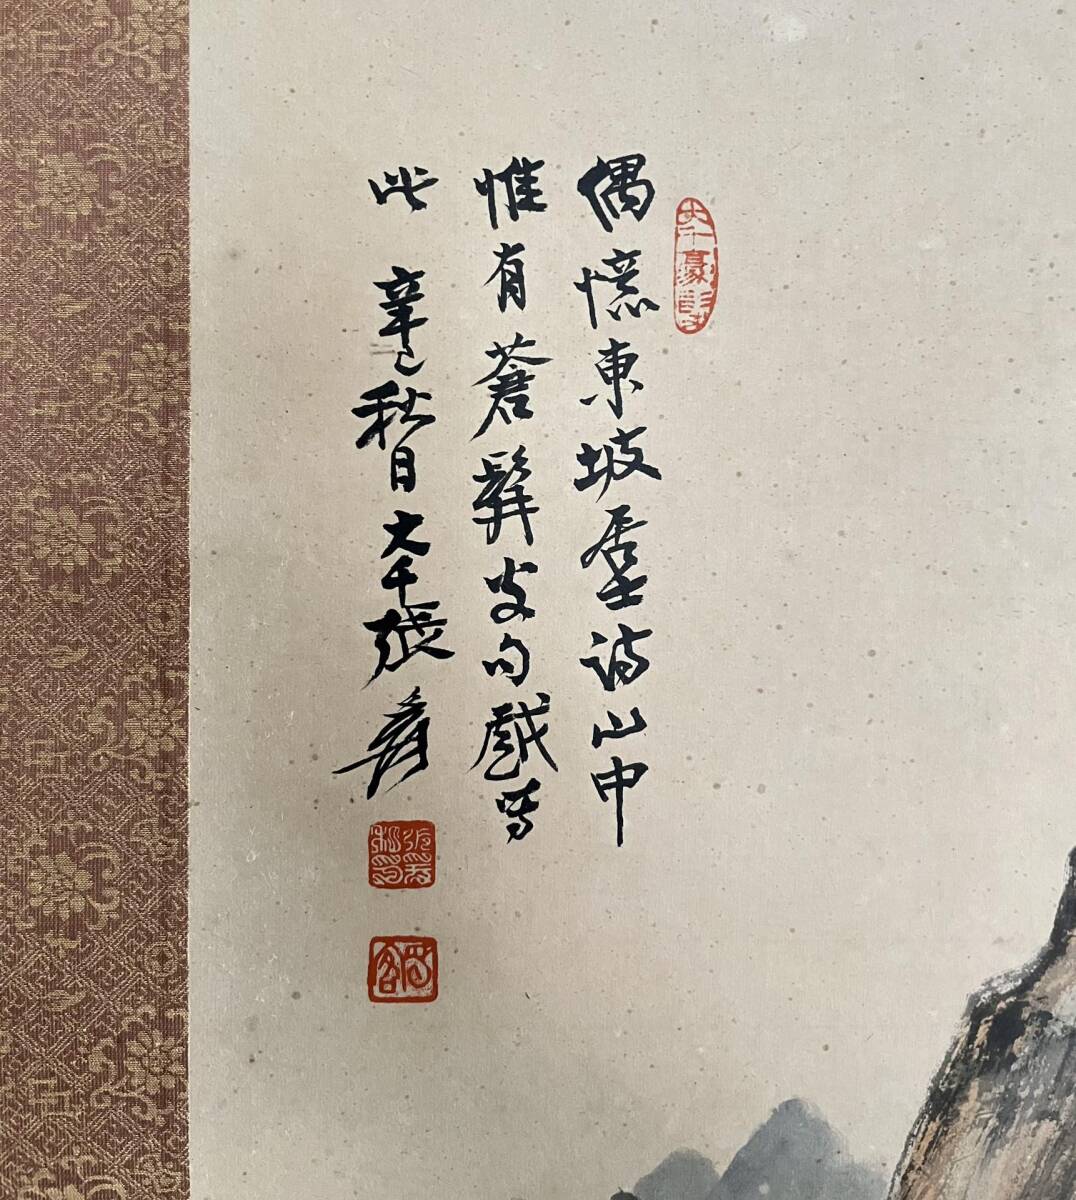 偶憶東坡居士詩山中
惟有蒼髯叟句戲寫
此 辛巳秋日大千張爰
大千豪髮
張爰私印
蜀客